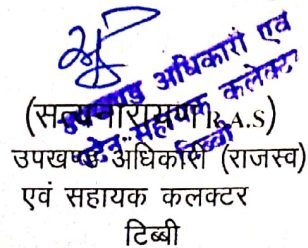 उपखण्ड अधिकारी एवं
पदेन सहायक कलेक्टर
टिब्बी
(सत्यनारायण R.A.S)
उपखण्ड अधिकारी (राजस्व)
एवं सहायक कलक्टर
टिब्बी